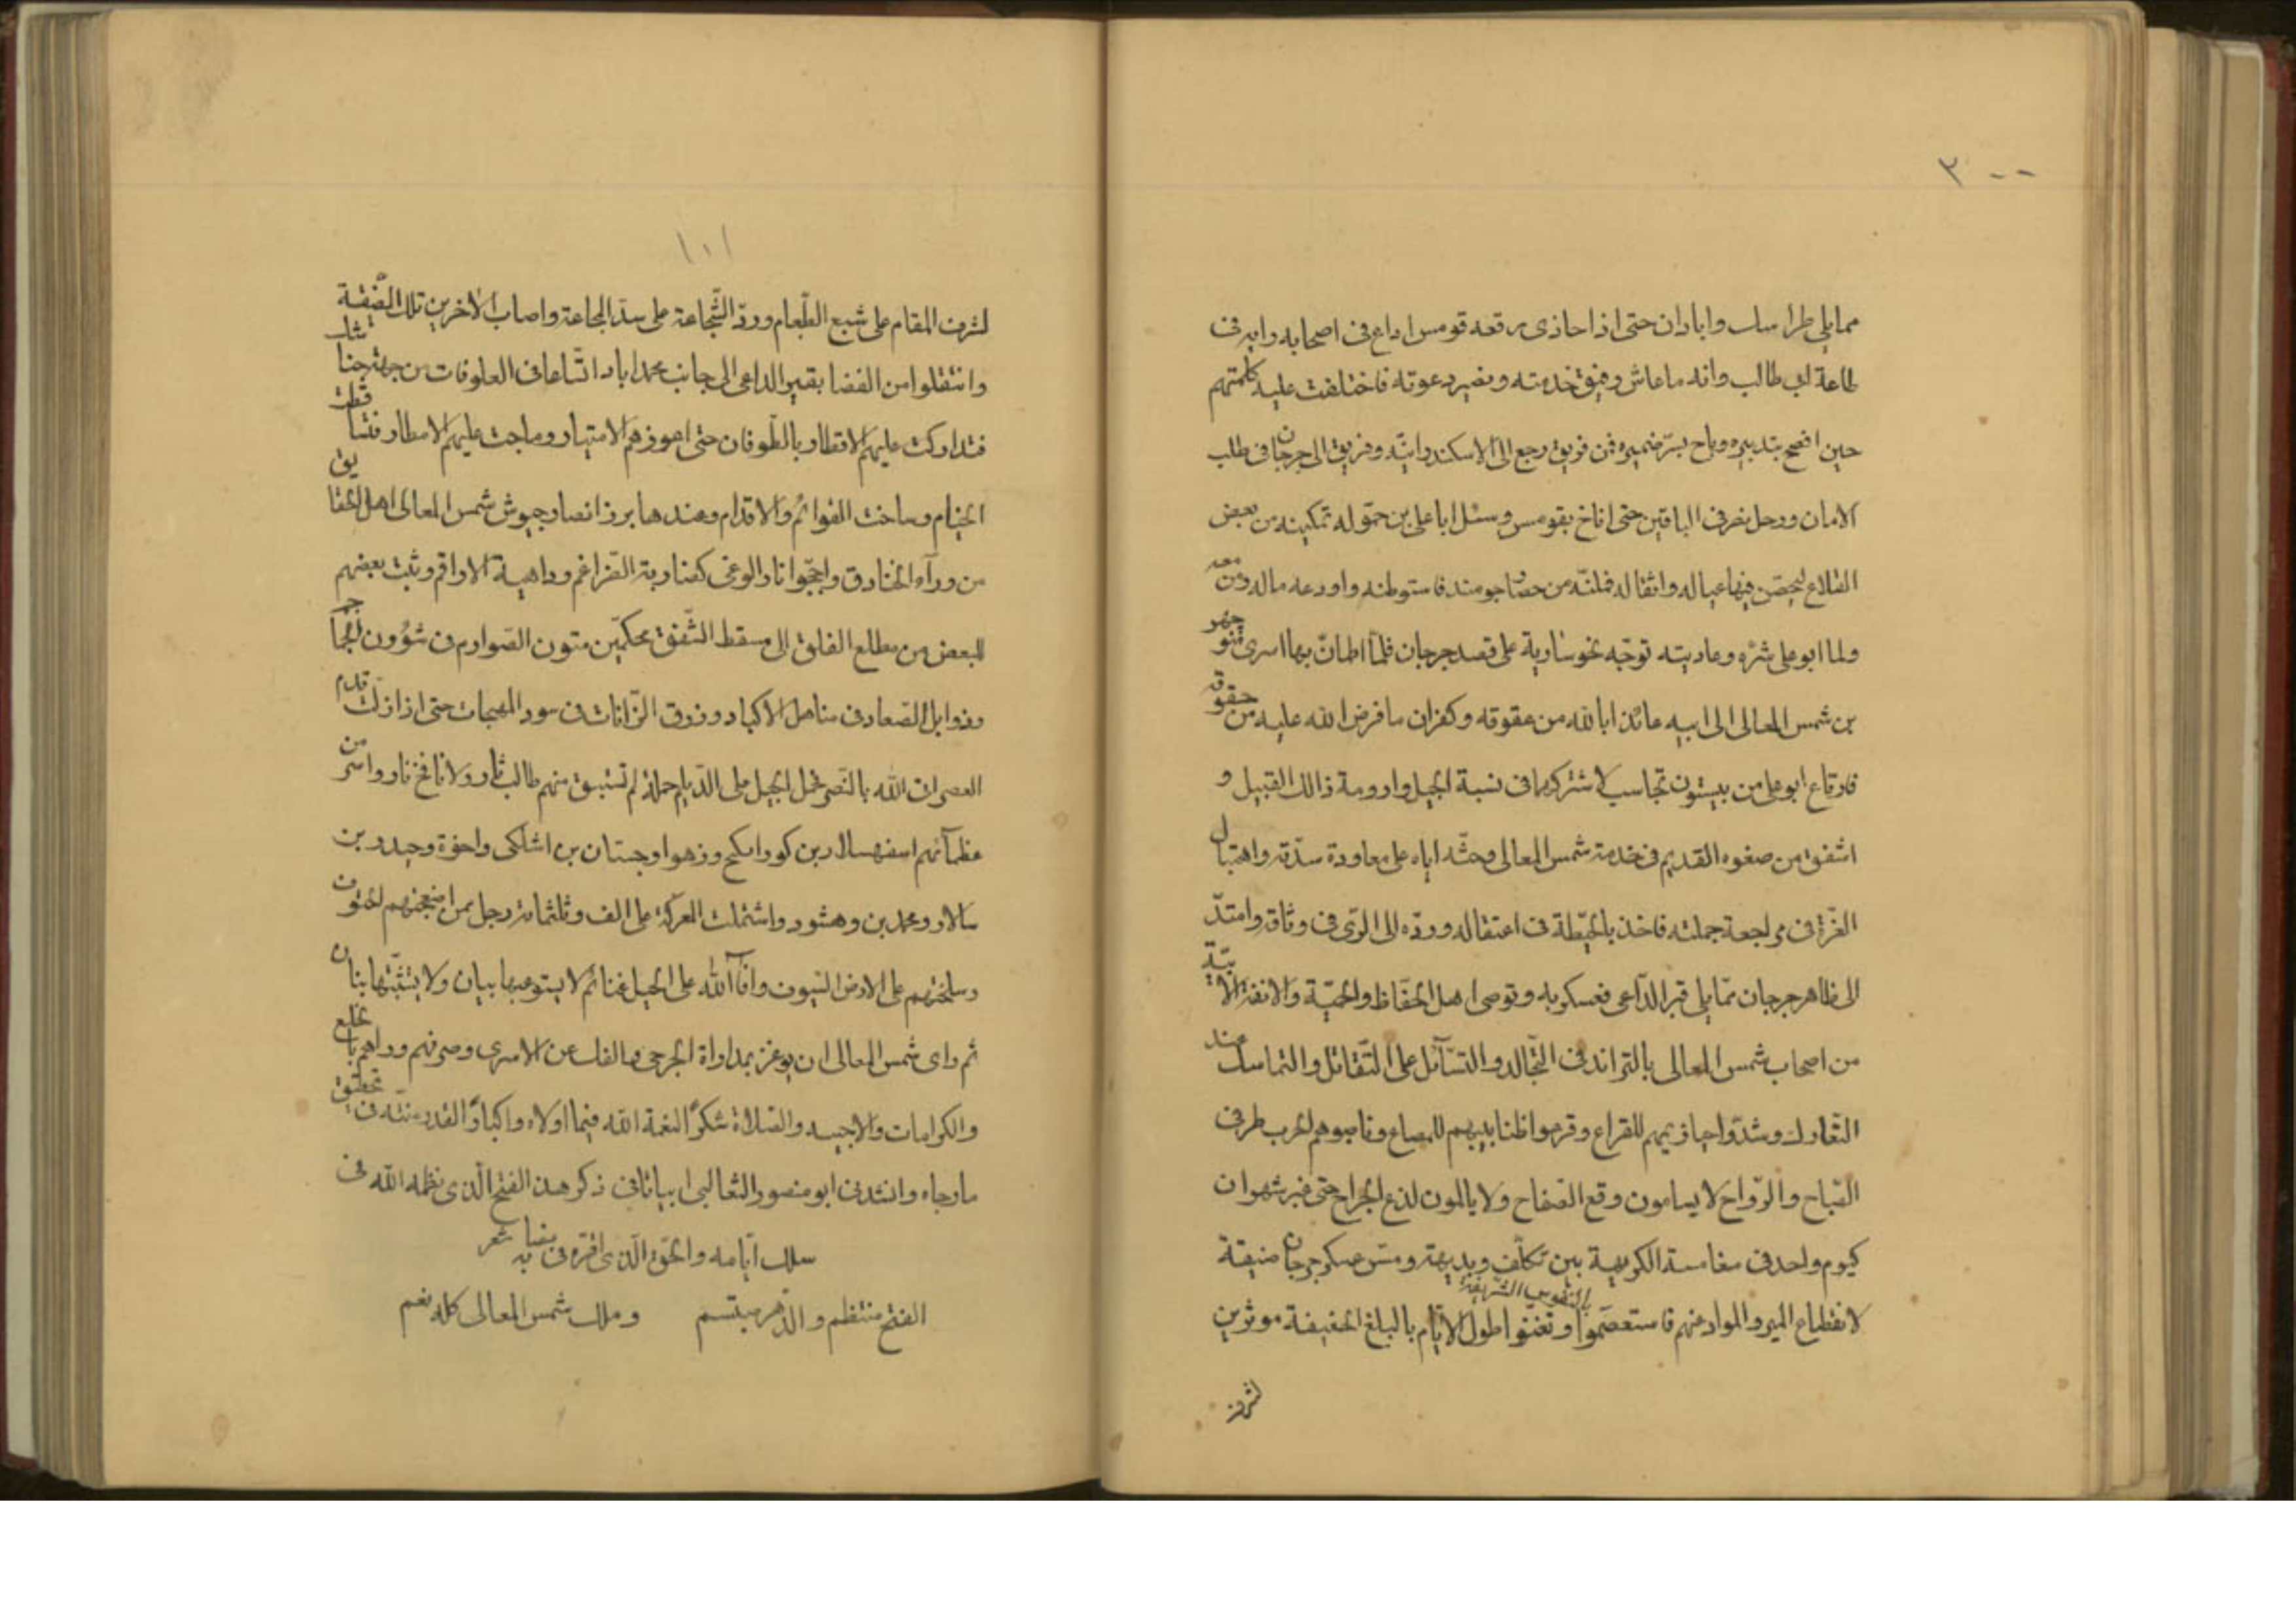 ٣٠٠
مما يلي طراساب واباذان حتى اذا حاذى رقعه قومس اذاع فى اصحابه رايه فى
طاعة ابى طالب وانه ما عاش رهيق خدمته ونصير دعوته فاختلفت عليه كلمتهم
حين افصح بتدبيره وباح بسرّ ضميره فمن فريق رجع الى الاسكندرانيّه وفريق الى جرجان فى طلب
الامان ورحل نصر فى الباقين حتى اناخ بقومس وسئل ابا على بن حمّوله تمكينه من بعض
القلاع ليحصّن فيها عياله واثقاله فملكّه من حصار جومند فاستوطنه واودعه ماله ومن معه
ولما ابو على شرّه وعاديته توجّه نحو سارية على قصد جرجان فلمّا اطمانّ بها اسرى منوجهر
بن شمس المعالى الى ابيه عائذا بالله من عقوقه وكفران ما فرض الله عليه من حقوقه
فارتاع ابو على من بيستون تجاسب لاشتراكهما فى نسبة الجيل وارومة ذالك القبيل و
اشفق من صغوه القديم فى خدمة شمس المعالى وحثّه اياه على معاودة سدّته واهتبال
الغرّة فى مراجعة جملته فاخذ بالحيطة فى اعتقاله وردّه الى الرّى فى وثاقه وامتدّ
الى ظاهر جرجان ممّا يلى قبر الدّاعى فعسكر به وتوصى اهل الحفاظ والحميّة والانفة الابيّة
من اصحاب شمس المعالى بالترافد فى التّجالد والتسآئل على التّقاتل والتماسك عند
التّعارك وشدّوا حيازيمهم للقراع وقرعوا ظنابيبهم للمصاع وناصبوهم الحرب طرفى
الصّباح والرّواح لا يسامون وقع الصّفاح ولا يالمون لذع الجراح حتى غبر شهران
كيوم واحد فى مغامسة الكريهة بين تكلّف وبديهة ومسّ عسكر جرجان ضيقة
لانقطاع المير والمواد عنهم فاستعصموا بالنفوس الشّريفة وتغنّوا طول الايّام بالبلغ الخفيفة موثرين
لشرف
١٠١
لشرف المقام على شبع الطّعام وردّ الشّجاعة على سدّ المجاعة واصاب الاخرين تلك الضّيقة
وانتقلوا من الفضا بقبر الداعى الى جانب محمداباد اتّساعا فى العلوفات من جهة جناشك
فتداركت عليهم الاقطار بالطّوفان حتى اعوزهم الامتيار وماجت عليهم الامطار فتساقطت
الخيام وساخت القوائم والاقدام وعندها برز انصار جيوش شمس المعالى اهل الحقايق
من ورآء الخنادق واجّجوا نار الوغى كضارية الضّراغم وداهية الاراقم وثبت بعضهم
للبعض من مطلع الفلق الى مسقط الشّفق محكمّين متون الصّوارم فى شؤون الجماجم
وذوابل الصّعاد فى مناهل الاكباد وزرق الزّانات فى سود المهجات حتى اذا زلت قدم
العصر اذن الله بالنّصر فحمل الجيل على الدّيلم حملة لم تستبق منهم طالب ثار ولا نافخ نار واسر من
عظمآئهم اسفهسالار بن كورانكيج وزهوا وجستان بن اشكلى واخوة وحيدر بن
سالار ومحمد بن وهشودر واشتملت المعركة على الف وثلثمائة رجل ممن اضجعتهم الحتوف
وسلختهم على الارض السّيوف وافآء الله على الجيل غنائم لا يستوعبها بيان ولا يتثبّتها بنان
ثم راى شمس المعالى ان يوعز بمداواة الجرحى والفك عن الاسرى وصرفهم وراهم بالخلع
والكرامات والاجبيه والصّلاة شكرًا لنعمة الله فيما اولاه واكبارًا لقدر منّته فى تحقيق
ما رجاه وانشدنى ابو منصور الثعالبى ابياتا فى ذكر هذا الفتح الّذى نظمه الله فى
سلك ايّامه والحقّ الّذى اقرّه فى نصابه شعر
الفتح منتظم والدّهر مبتسم وملك شمس المعالى كله نعم